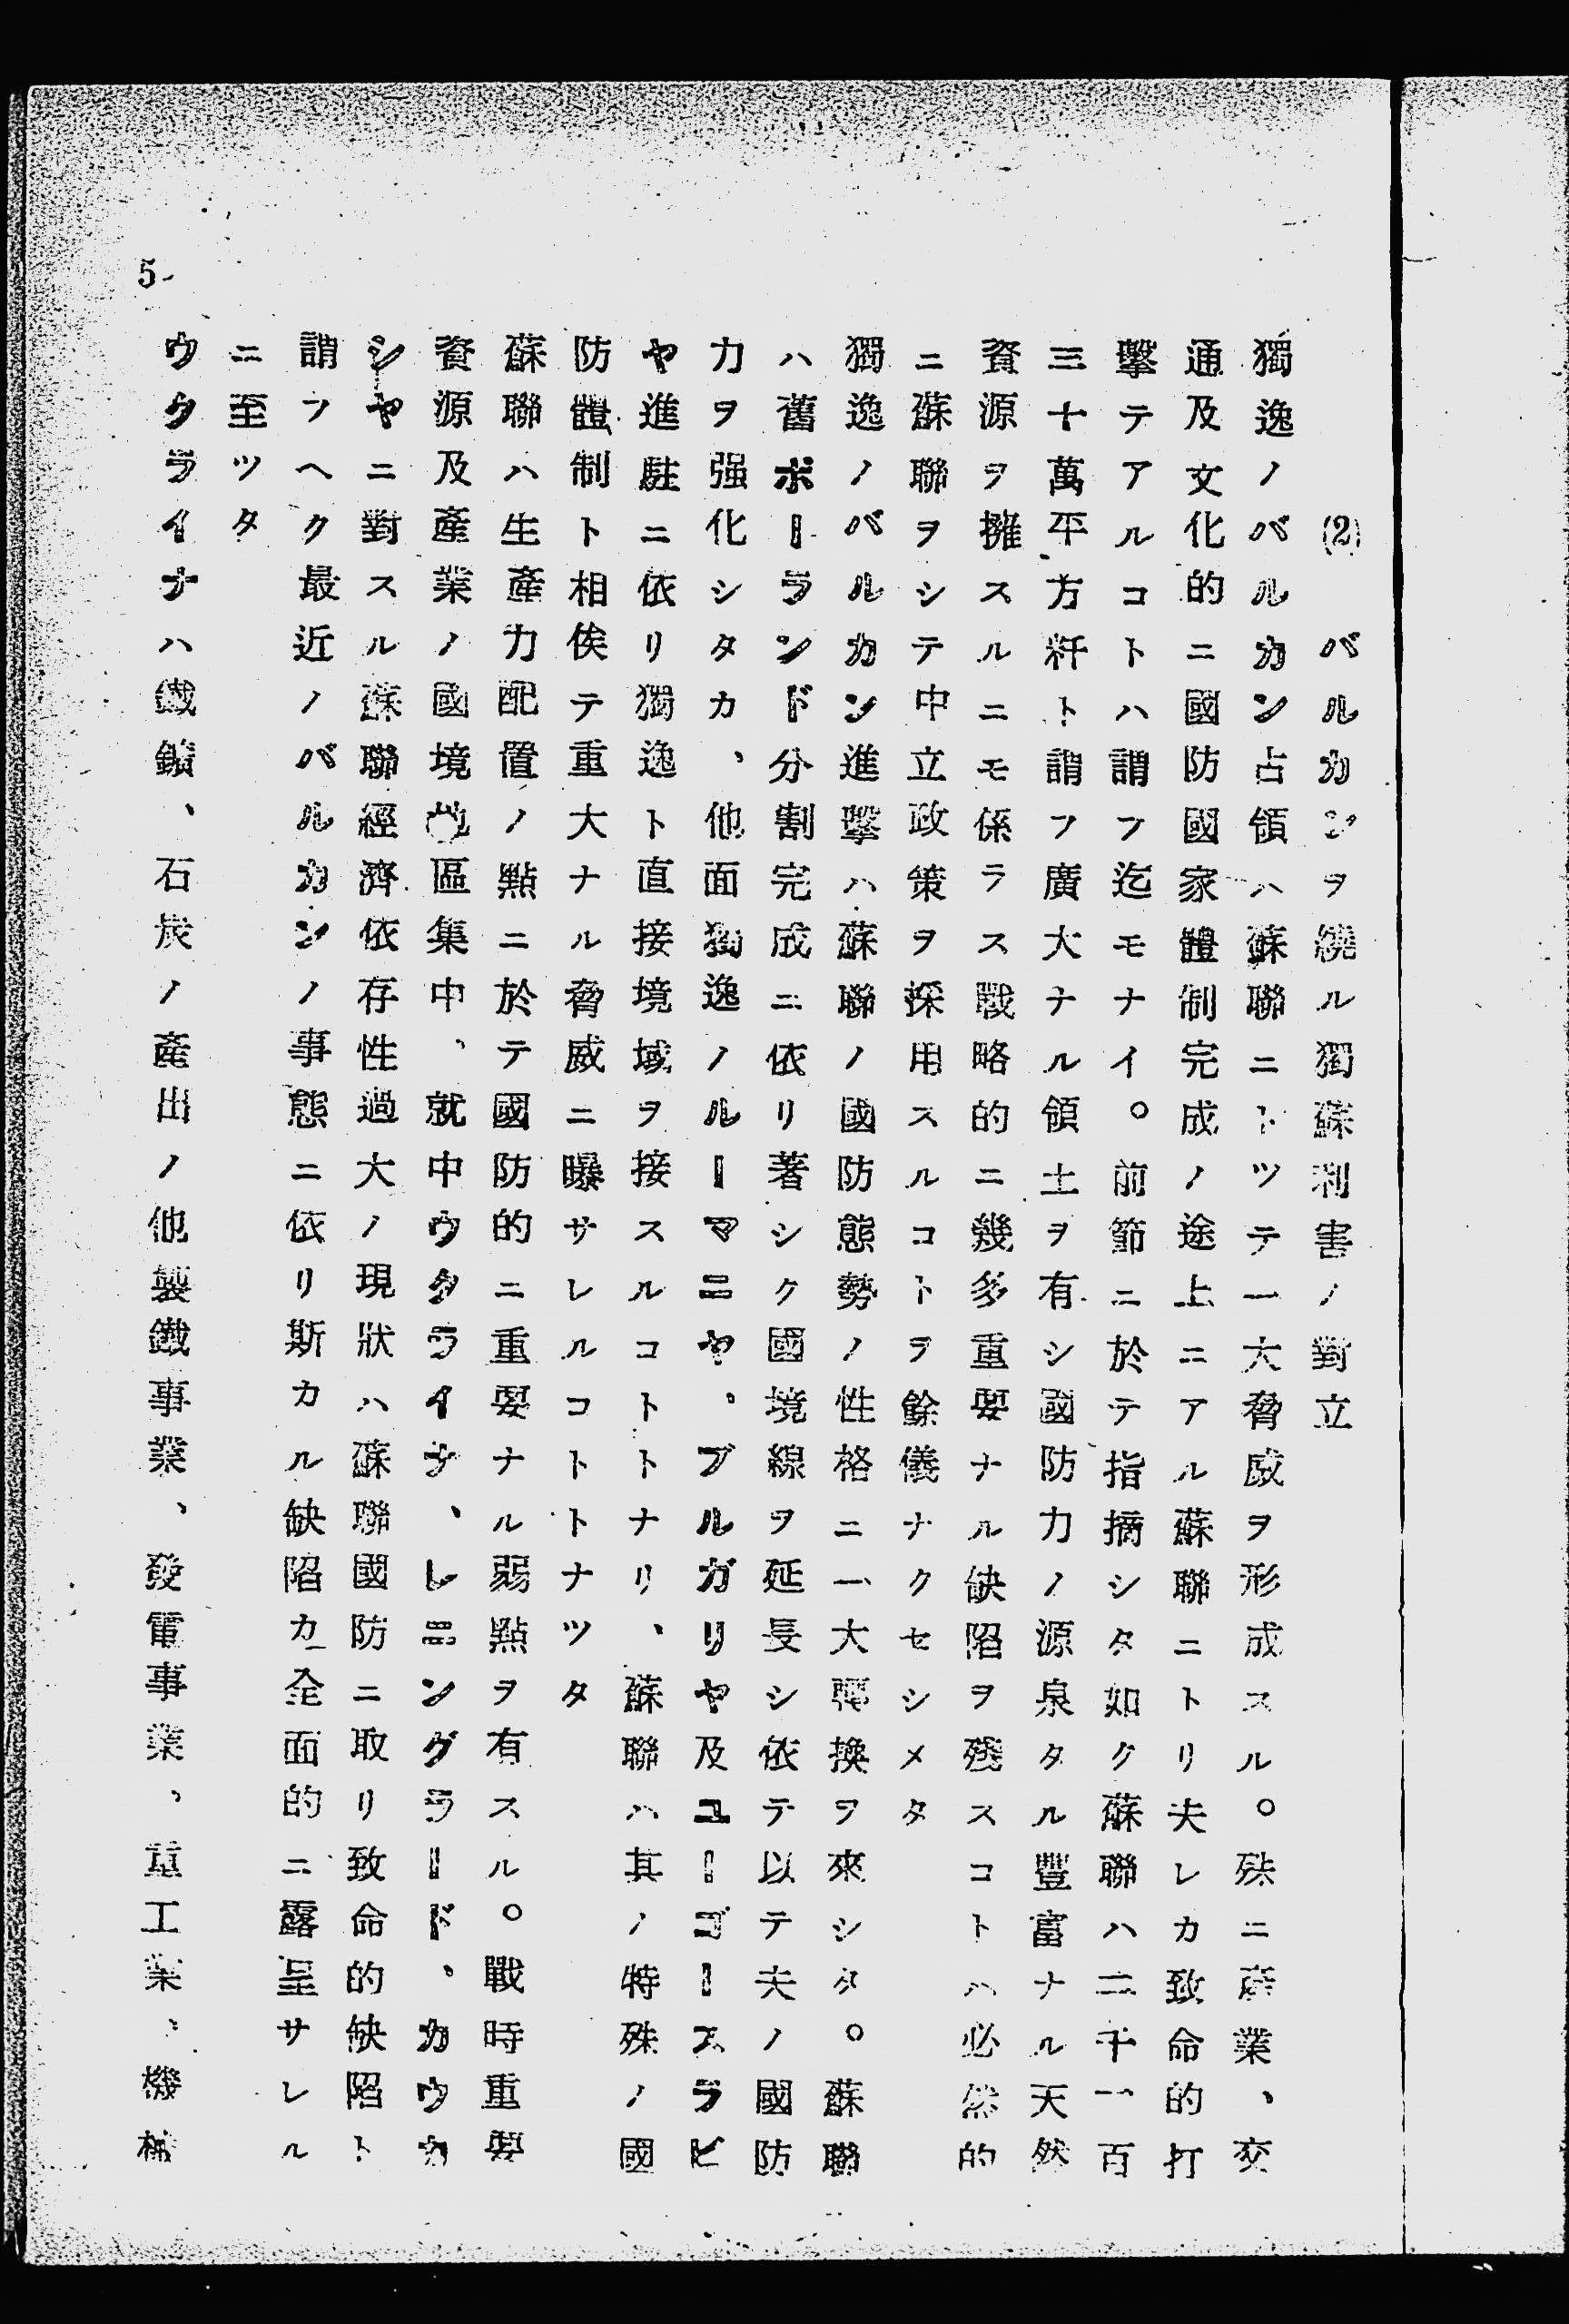 (2) バルカンヲ繞ル獨蘇利害ノ對立
獨逸ノバルカン占領ハ蘇聯ニトツテ一大脅威ヲ形成スル。殊ニ產業、交
通及文化的ニ國防國家體制完成ノ途上ニアル蘇聯ニトリ夫レカ致命的打
擊テアルコトハ謂フ迄モナイ。前節ニ於テ指摘シタ如ク蘇聯ハ二千一百
三十萬平方粁ト謂フ廣大ナル領土ヲ有シ國防力ノ源泉タル豐富ナル天然
資源ヲ擁スルニモ係ラス戰略的ニ幾多重要ナル缺陷ヲ殘スコトハ必然的
ニ蘇聯ヲシテ中立政策ヲ採用スルコトヲ餘儀ナクセシメタ
獨逸ノバルカン進擊ハ蘇聯ノ國防態勢ノ性格ニ一大轉換ヲ來シタ。蘇聯
ハ舊ポーランド分割完成ニ依リ著シク國境線ヲ延長シ依テ以テ夫ノ國防
力ヲ强化シタカ、他面獨逸ノルーマニヤ、ブルガリヤ及ユーゴースラビ
ヤ進駐ニ依リ獨逸ト直接境域ヲ接スルコトトナリ、蘇聯ハ其ノ特殊ノ國
防體制ト相俟テ重大ナル脅威ニ曝サレルコトトナツタ
蘇聯ハ生產力配置ノ點ニ於テ國防的ニ重要ナル弱點ヲ有スル。戰時重要
資源及產業ノ國境地區集中、就中ウクライナ、レニングラード、カウカ
シヤニ對スル蘇聯經濟依存性過大ノ現狀ハ蘇聯國防ニ取リ致命的缺陷ト
謂フヘク最近ノバルカンノ事態ニ依リ斯カル缺陷カ全面的ニ露呈サレル
ニ至ツタ
ウクライナハ鐵鑛、石炭ノ產出ノ他製鐵事業、發電事業、重工業、機械
5